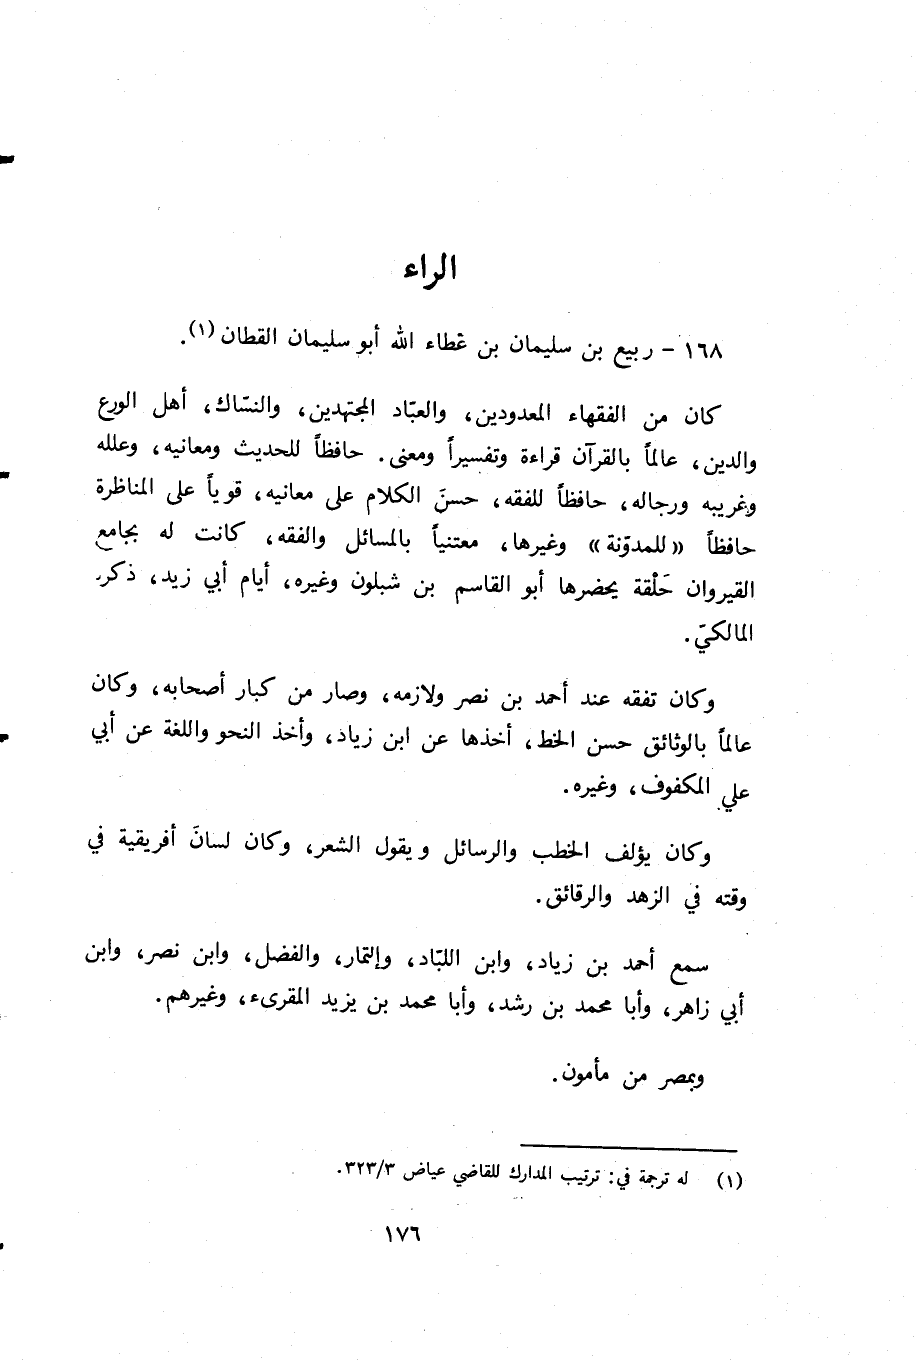 الراء
١٦٨ - ربيع بن سليمان بن عَطاء الله أبو سليمان القطان (١).
كان من الفقهاء المعدودين، والعبّاد المجتهدين، والنسّاك، أهل الورع
والدين، عالماً بالقرآن قراءة وتفسيراً ومعنى. حافظاً للحديث ومعانيه، وعلله
وغريبه ورجاله، حافظاً للفقه، حسنَ الكلام على معانيه، قوياً على المناظرة
حافظاً «للمدوّنة» وغيرها، معتنياً بالمسائل والفقه، كانت له بجامع
القيروان حَلْقة يحضرها أبو القاسم بن شبلون وغيره، أيام أبي زيد، ذكره
المالكيّ.
وكان تفقه عند أحمد بن نصر ولازمه، وصار من كبار أصحابه، وكان
عالماً بالوثائق حسن الخط، أخذها عن ابن زياد، وأخذ النحو واللغة عن أبي
علي المكفوف، وغيره.
وكان يؤلف الخطب والرسائل ويقول الشعر، وكان لسانَ أفريقية في
وقته في الزهد والرقائق.
سمع أحمد بن زياد، وابن اللبّاد، والتمّار، والفضل، وابن نصر، وابن
أبي زاهر، وأبا محمد بن رشد، وأبا محمد بن يزيد المقرىء، وغيرهم.
وبمصر من مأمون.
(١) له ترجمة في: ترتيب المدارك للقاضي عياض ٣٢٣/٣.
١٧٦